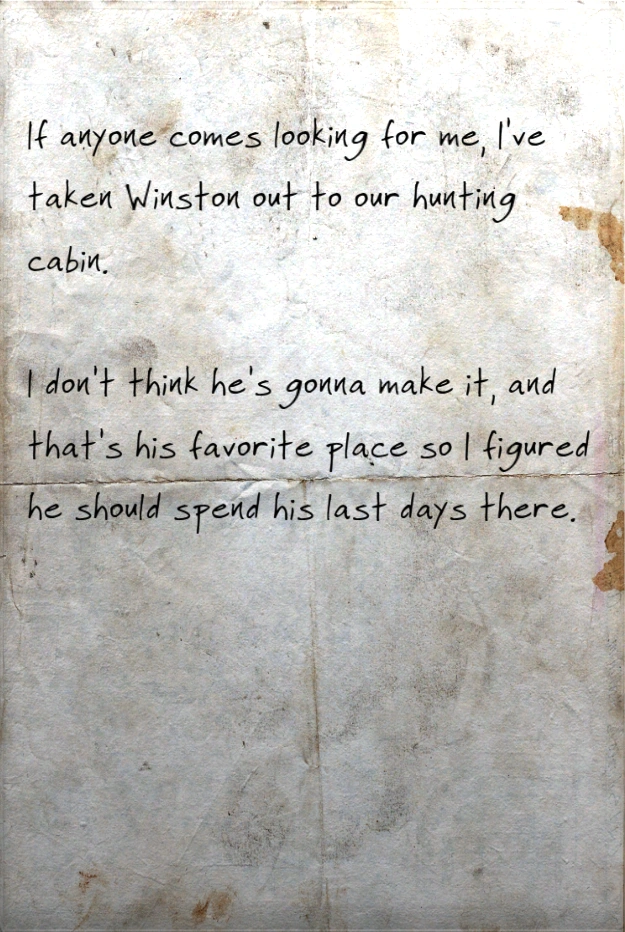 If anyone comes looking for me, I've
taken Winston out to our hunting
cabin.
I don't think he's gonna make it, and
that's his favorite place so I figured
he should spend his last days there.